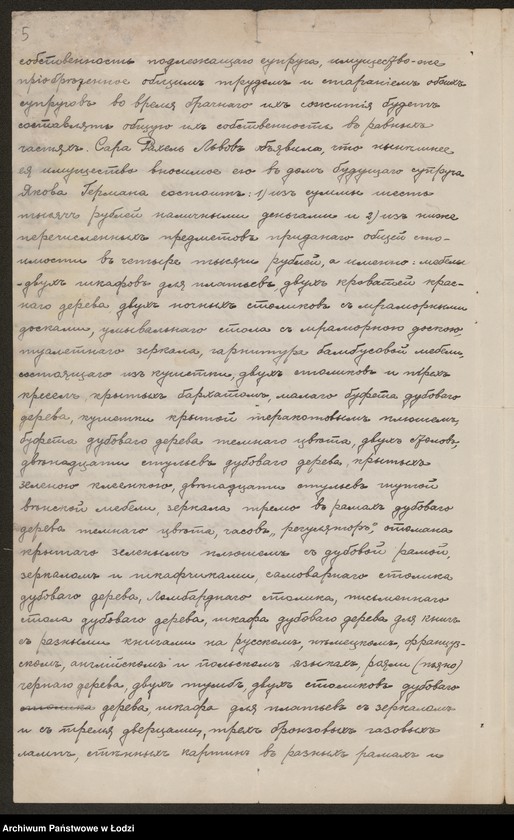 5
собственность подлежащаго супруга, имущество-же
пріобрѣтенное общимъ трудомъ и стараніемъ обоихъ
супруговъ во время брачнаго ихъ сожитія будетъ
составлять общую ихъ собственность въ равныхъ
частяхъ. Сара Рахель Львовъ объявила, что нынѣшнее
ея имущество вносимое ею въ домъ будущаго супруга
Якова Германа состоитъ: 1) изъ суммы шесть
тысячъ рублей наличными деньгами и 2) изъ ниже
перечисленныхъ предметовъ приданаго общей сто-
имости въ четыре тысячи рублей, а именно: мебели
-двухъ шкафовъ для платьевъ, двухъ кроватей крас-
наго дерева двухъ ночныхъ столиковъ съ мраморными
досками, умывельнаго стола съ мраморною доскою,
туалетнаго зеркала, гарнитура бамбусовой мебели,
состоящаго изъ кушетки, двухъ столиковъ и трехъ
креселъ, крытыхъ бархатомъ, малаго буфета дубоваго
дерева, кушетки крытой теракотовымъ плюшемъ,
буфета дубоваго дерева темнаго цвѣта, двухъ столовъ,
двѣнадцати стульевъ дубоваго дерева, крытыхъ
зеленою клеенкою, двѣнадцати стульевъ гнутой
вѣнской мебели, зеркала тремо въ рамахъ дубоваго
дерева темнаго цвѣта, часовъ „регуляторъ", отомана
крытаго зеленымъ плюшемъ съ дубовой рамой,
зеркаломъ и шкафчиками, самоварнаго столика
дубоваго дерева, ломбарднаго столика, письменнаго
стола дубоваго дерева, шкафа дубоваго дерева для книгъ
съ разными книгами на русскомъ, нѣмецкомъ, француз-
скомъ, англійскомъ и польскомъ языкахъ, рояли (піанно)
чернаго дерева, двухъ тумбъ, двухъ столиковъ дубоваго
столика дерева, шкафа для платьевъ съ зеркаломъ
и съ тремя дверцами, трехъ бронзовыхъ газовыхъ
лампъ, стѣнныхъ картинъ въ разныхъ рамахъ и
Archiwum Państwowe w Łodzi